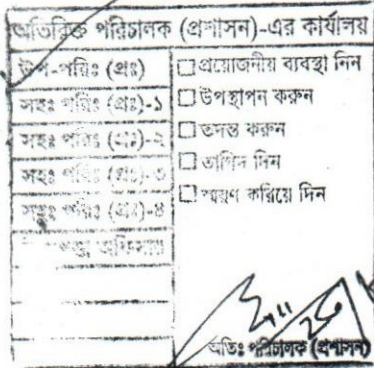 অতিরিক্ত পরিচালক (প্রশাসন)-এর কার্যালয়
উপ-পরিঃ (প্রঃ)
সহঃ পরিঃ (প্রঃ)-১
সহঃ পরিঃ (প্রঃ)-২
সহঃ পরিঃ (প্রঃ)-৩
সহঃ পরিঃ (প্রঃ)-৪
অফিসার
প্রয়োজনীয় ব্যবস্থা নিন
উপস্থাপন করুন
তদন্ত করুন
তাগিদ দিন
স্মরণ করিয়ে দিন
অতিঃ পরিচালক (প্রশাসন)